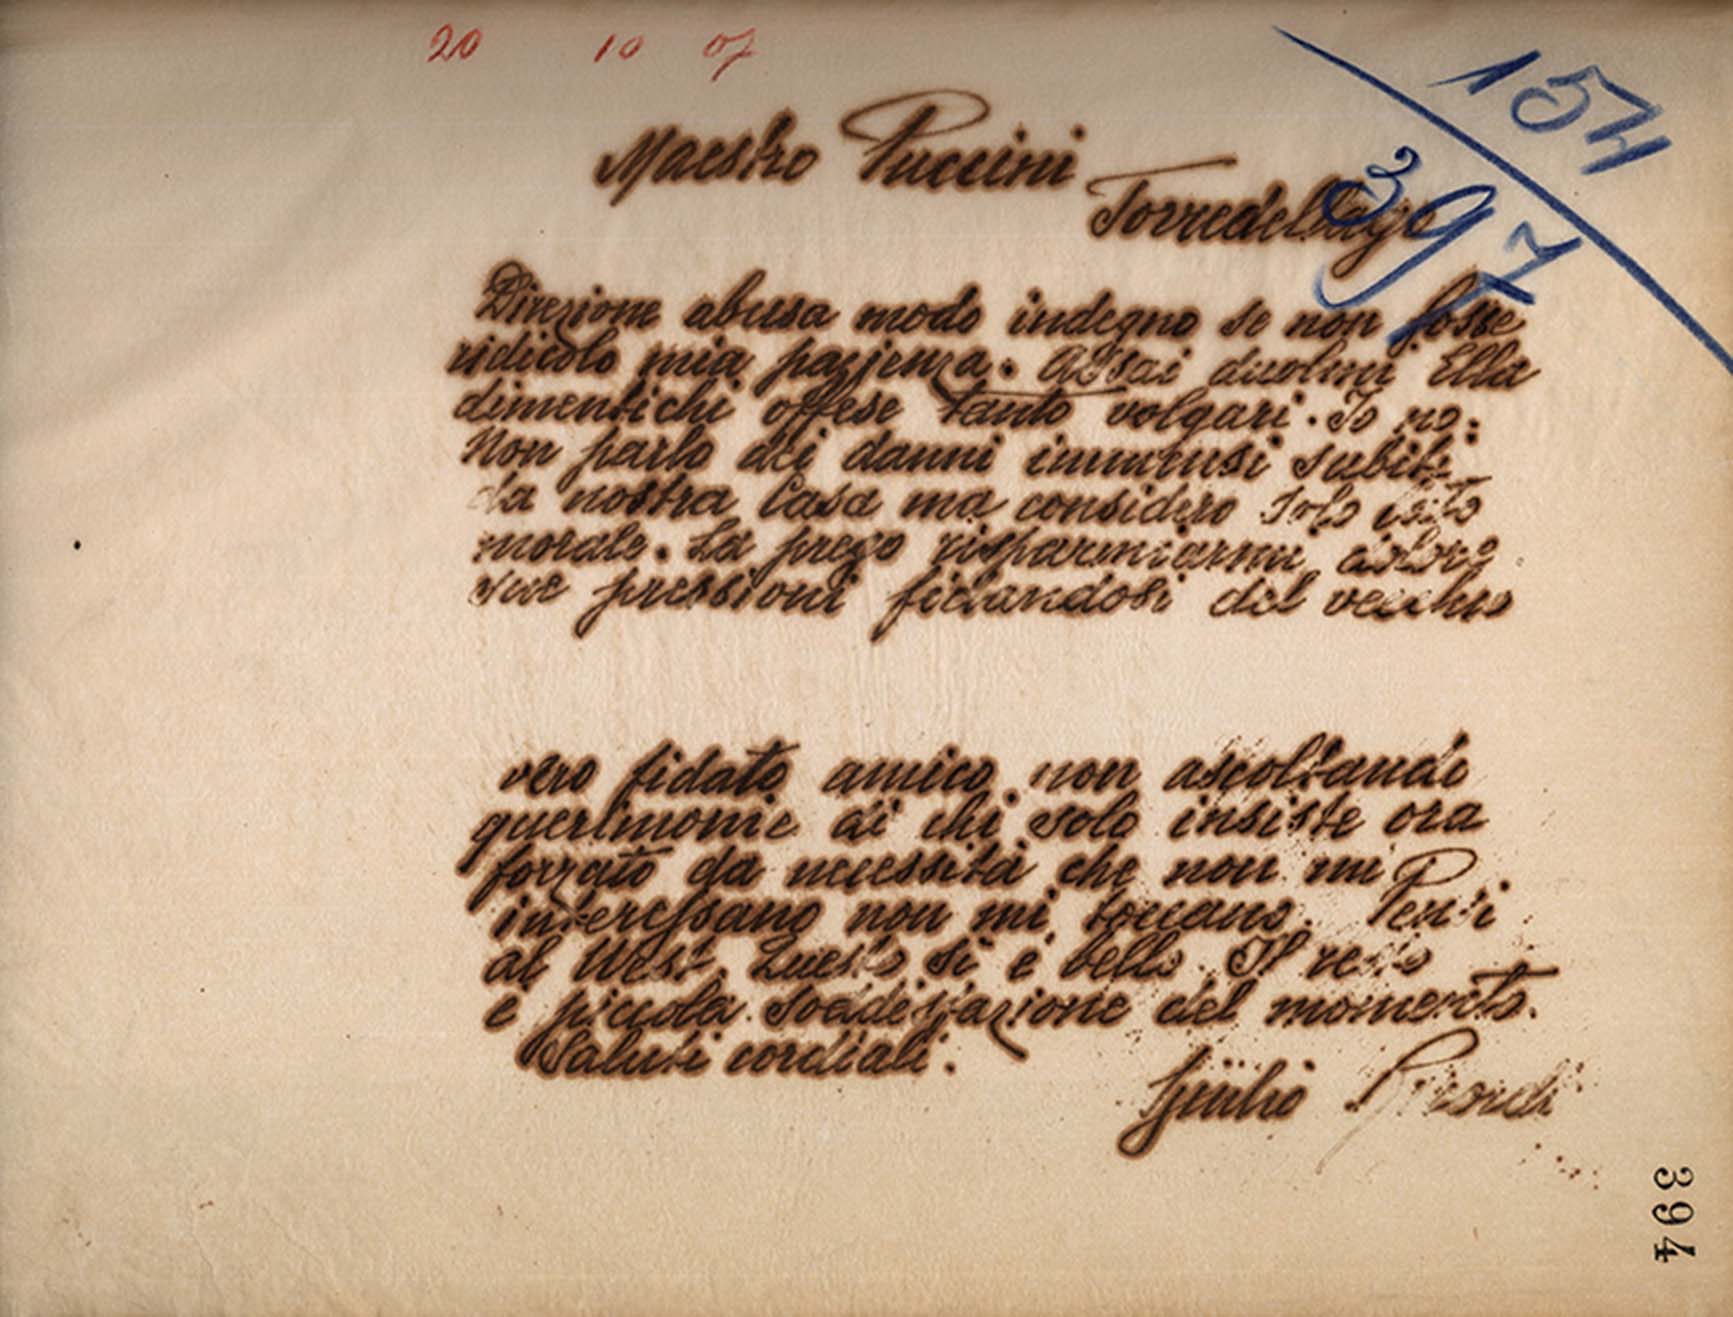 20 10 07
154
397
Maestro Puccini
Torredellago
Direzione abusa modo indegno se non fosse
ridicolo mia pazienza. Assai duolmi Ella
dimentichi offese tanto volgari. Io no.
Non parlo dei danni immensi subiti
da nostra Casa ma considero solo lato
morale. La prego risparmiarmi
sue pressioni fidandosi del vecchio
vero fidato amico non ascoltando
querimonie di chi solo insiste ora
forzato da necessità che non mi
interessano non mi toccano. Pensi
al West. Questo si è bello. Il resto
è piccola soddisfazione del momento.
Saluti cordiali.
Giulio Ricordi
394